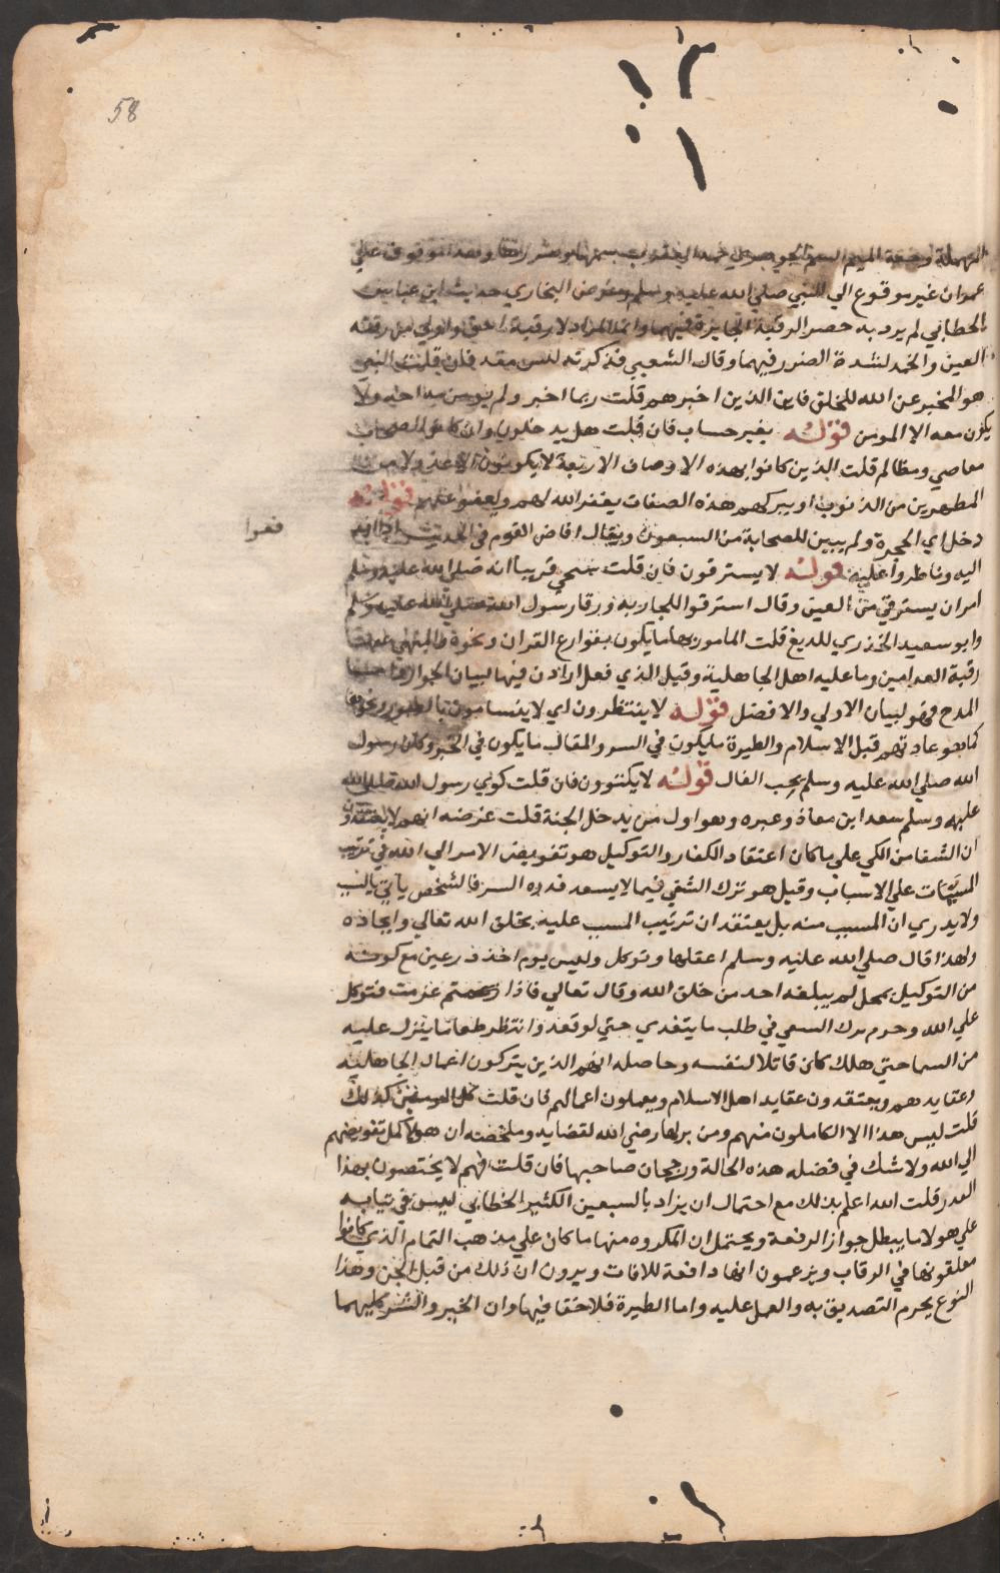 58
المهملة وضمة الميم السم
عمران غير مرفوع الي النبي صلي الله عليه وسلم وغرض البخاري حديث ابن عباس
الخطابي لم يرد به حصر الرقية الجايزة فيهما وانما المراد لا رقية احق واولي من رقية
العين والحمه لشدة الضرر فيهما وقال الشعبي فذكرته لسعيد فان قلت النبي
هو المخبر عن الله للخلق فاين الذين اخبرهم قلت ربما اخبر ولم يومن به احد ولا
يكون معه الا المومن قوله بغير حساب فان قلت هل يدخلون وان كانوا اصحاب
معاصي ومظالم قلت الذين كانوا بهذه الاوصاف الاربعة لا يكونون الا عدولا
المطهرين من الذنوب او ببركة هذه الصفات يغفر الله لهم ويعفوا عنهم قوله
دخل اي الحجرة ولم يبين للصحابة من السبعون ويقال افاض القوم في الحديث اذا
فعوا
اليه وناظروا عليه قوله لا يسترقون فان قلت قريبا انه صلي الله عليه وسلم
امر ان يسترقي من العين وقال استرقوا للجارية ورقا رسول الله صلي الله عليه وسلم
وابو سعيد الخدري للديغ قلت المامور بها ما يكون بقوارع القران ونحوه والمنهي عنها
رقية العدامين وما عليه اهل الجاهلية وقيل الذي فعل او اذن فيها لبيان الجواز
المدح فهو لبيان الاولي والافضل قوله لا ينتظرون اي لا يتشامون بالطيور ونحوها
كما هو عادتهم قبل الاسلام والطيرة ما يكون في السر والمقال ما يكون في الخير وكان رسول
الله صلي الله عليه وسلم يحب الفال قوله لا يكتوون فان قلت كوي رسول الله صلي الله
عليه وسلم سعد ابن معاذ وغيره وهو اول من يدخل الجنة قلت غرضه انهم لا يعتقدون
ان الشفا من الكي علي ما كان اعتقاد الكفار والتوكيل هو تفويض الامر الي الله في ترتيب
المسببات علي الاسباب وقيل هو ترك الشقي فيما لا يسعه قدره السر فالشخص ياتي بالسبب
ولا يدري ان المسبب منه بل يعتقد ان ترتيب المسبب عليه بخلق الله تعالي وايجاده
ولهذا قال صلي الله عليه وسلم اعقلها وتوكل ولبس يوم احد درعين مع كونه
من التوكيل بمحل لم يبلغه احد من خلق الله وقال تعالي فاذا عزمت فتوكل
علي الله وحرم ترك السعي في طلب ما يتغدي حتي لو قعد وانتظر طعاما ينزل عليه
من السما حتي هلك كان قاتلا لنفسه وحاصله انهم الذين يتركون اعمال الجاهلية
وعقايدهم ويعتقدون عقايد اهل الاسلام ويعملون اعمالهم فان قلت كل المومنين كذلك
قلت ليس هذا الا الكاملون منهم ومن يرضي الله لقضايه وملخصه ان هولا كمل تفويضهم
الي الله ولا شك في فضله هذه الحالة ورجحان صاحبها فان قلت فهم لا يختصون بهذا
العدر قلت الله اعلم بذلك مع احتمال ان يراد بالسبعين الكثير الخطابي ليس في ثيابه
علي هولا ما يبطل جواز الرقية ويحتمل ان المكروه منها ما كان علي مذهب التمام الذي كانوا
معلقونها في الرقاب ويزعمون انها دافعة للافات ويرون ان ذلك من قبل الجن وهذا
النوع يحرم التصديق به والعمل عليه واما الطيرة فلا خفا فيها وان الخير والشر كليهما